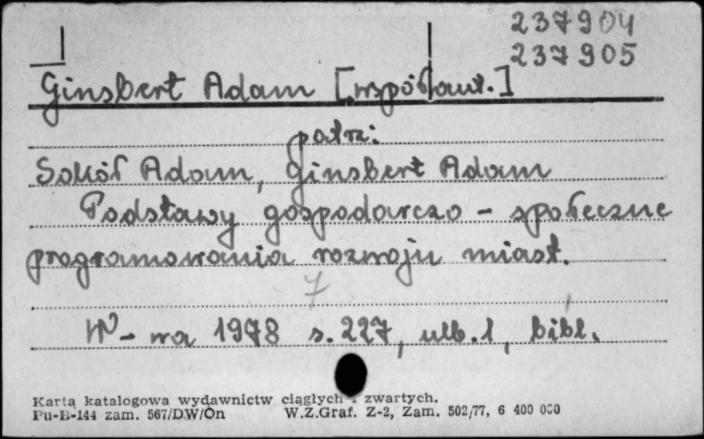 237904
237905
Ginsbert Adam [współaut.]
patrz:
Sokół Adam, Ginsbert Adam
Podstawy gospodarczo - społeczne
programowania rozwoju miast.
7
W - wa 1978 s. 227, ulb. 1, bibl.
Karta katalogowa wydawnictw ciągłych i zwartych.
Pu-B-144 zam. 567/DW/On W.Z.Graf. Z-2, Zam. 502/77, 6 400 000